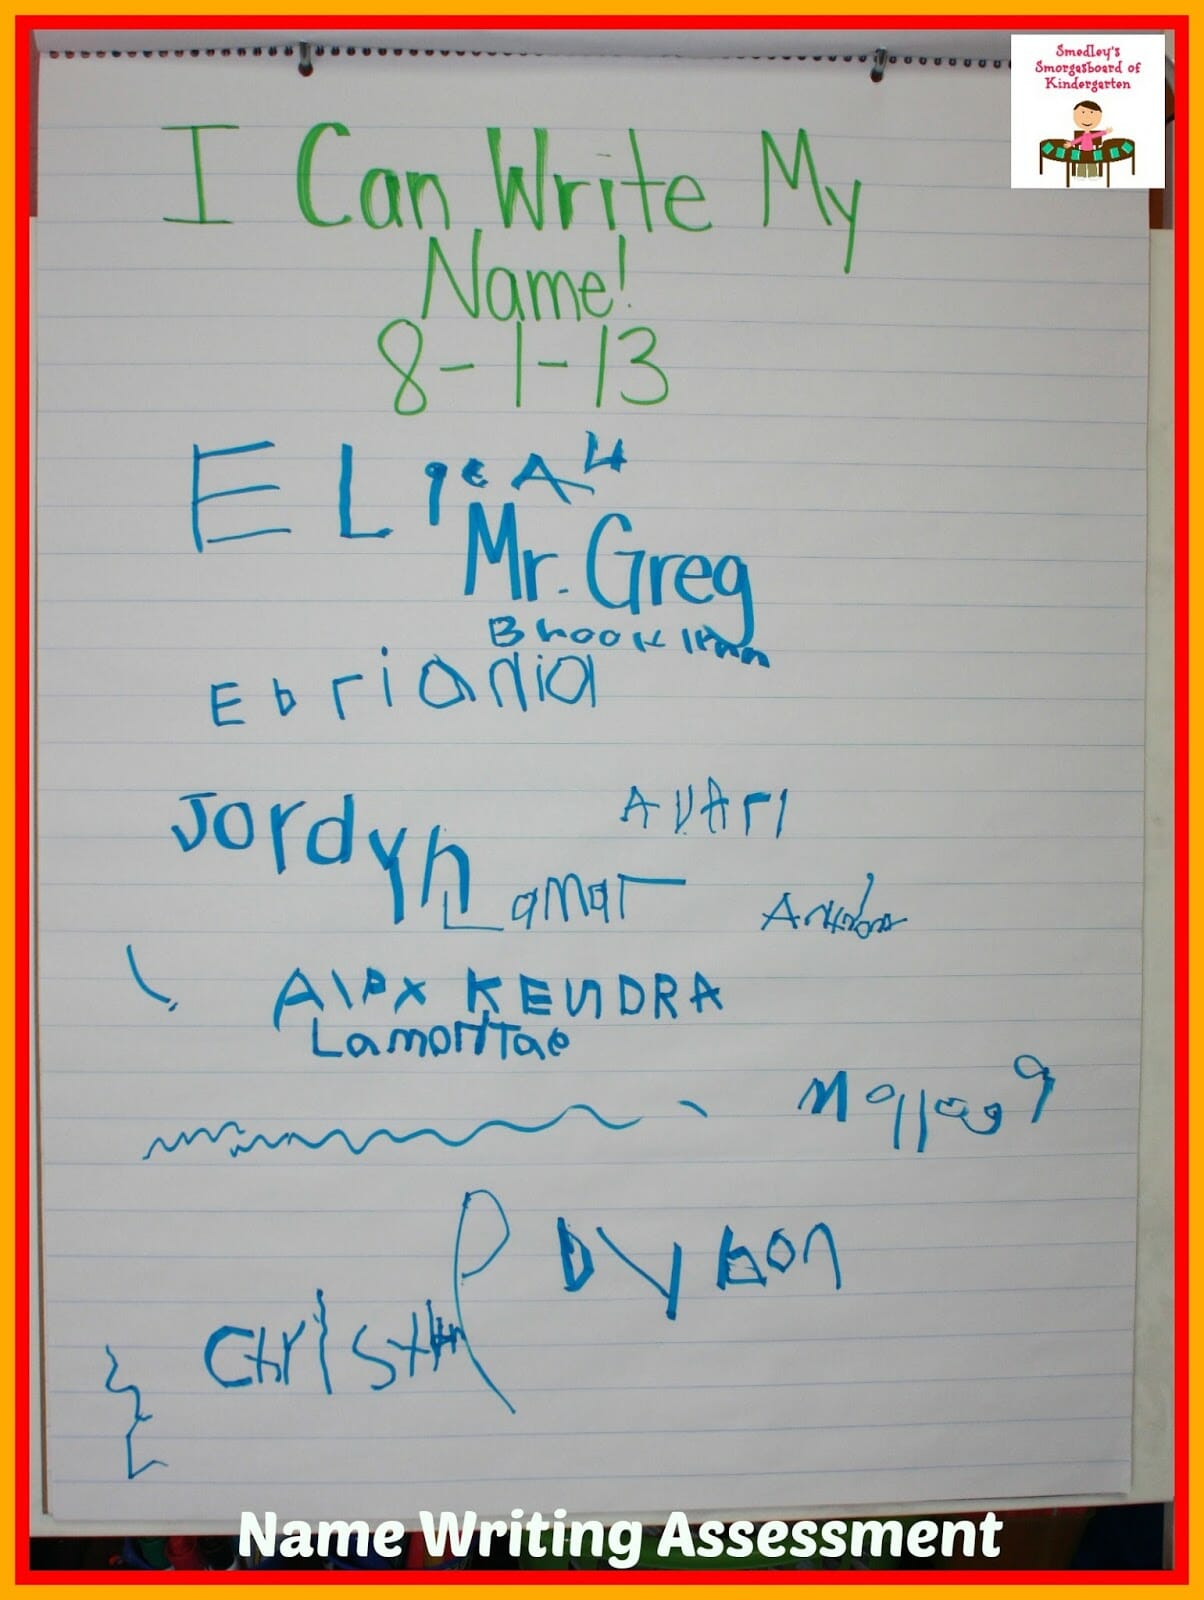 Smedley's
Smorgasboard of
Kindergarten
I Can Write My
Name!
8-1-13
ELiEAH
Mr. Greg
Brooklynn
Ebriania
Jordyn
AVAri
Lamar
Alex KENDRA
LamonTae
Dylon
Name Writing Assessment